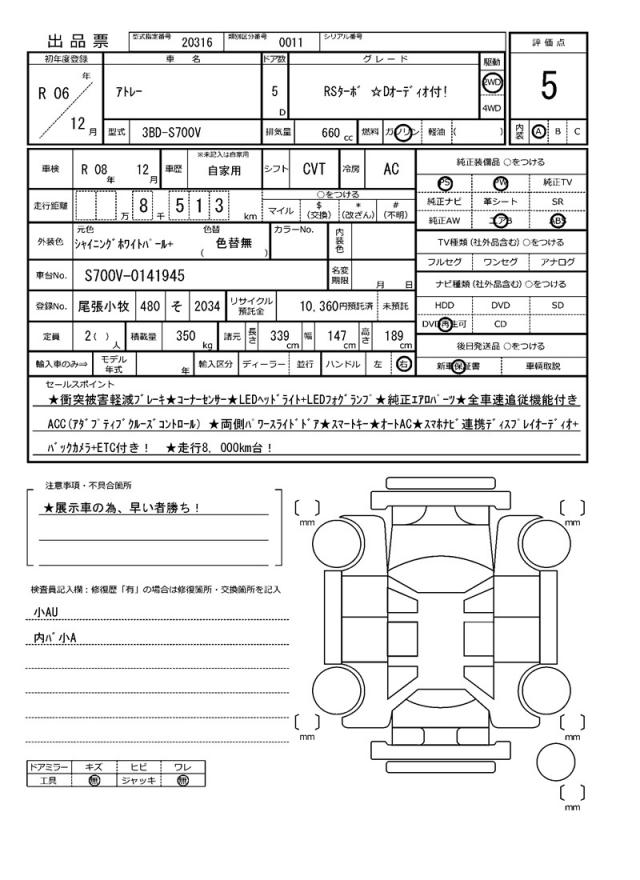 出品票 型式指定番号 20316 類別区分番号 0011 シリアル番号
評価点
初年度登録 車名 ドア数 グレード 駆動
R 06 年 12 月
アトレー
5 D
RSターボ ☆Dオーディオ付!
2WD
4WD
5
型式 3BD-S700V 排気量 660 cc 燃料 ガソリン 軽油 ( )
内装 A B C
車検 R 08 年 12 月 車歴 ※未記入は自家用 自家用 シフト CVT 冷房 AC
純正装備品 ○をつける
PS PW 純正TV
純正ナビ 革シート SR
純正AW エアB ABS
走行距離 万 8 千 5 1 3 km
○をつける
マイル $(交換) *(改ざん) #(不明)
外装色 元色 シャイニングホワイトパール+ 色替 ( 色替無 ) カラーNo. 内装色
TV種類(社外品含む)○をつける
フルセグ ワンセグ アナログ
車台No. S700V-0141945 名変期限 月 日
ナビ種類(社外品含む)○をつける
HDD DVD SD
DVD再生可 CD
登録No. 尾張小牧 480 そ 2034 リサイクル預託金 10,360円預託済 未預託
定員 2( )人 積載量 350 kg 諸元 長さ 339 cm 幅 147 cm 高さ 189 cm
後日発送品 ○をつける
新車保証書 車輌取説
輸入車のみ⇒ モデル年式 年 輸入区分 ディーラー 並行 ハンドル 左 右
セールスポイント
★衝突被害軽減ブレーキ★コーナーセンサー★LEDヘッドライト+LEDフォグランプ★純正エアロパーツ★全車速追従機能付き
ACC(アダプティブクルーズコントロール) ★両側パワースライドドア★スマートキー★オートAC★スマホナビ連携ディスプレイオーディオ+
バックカメラ+ETC付き! ★走行8,000km台!
注意事項・不具合箇所
★展示車の為、早い者勝ち!
検査員記入欄:修復歴「有」の場合は修復箇所・交換箇所を記入
小AU
内バ小A
ドアミラー キズ ヒビ ワレ
工具 無 ジャッキ 無
mm
mm
mm
mm
mm